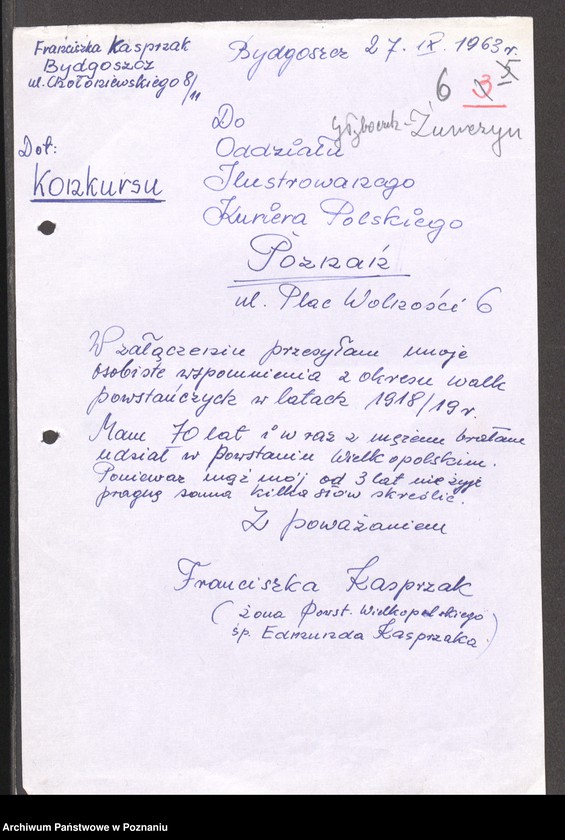 Franciszka Kasprzak
Bydgoszcz
ul. Chołoniewskiego 8/11
Bydgoszcz 27. IX. 1963 r.
6 3 5
Do
Żuwczyn
Dot:
Oddziału
Konkursu
Ilustrowanego
Kuriera Polskiego
Poznań
ul. Plac Wolności 6
W załączeniu przesyłam moje
osobiste wspomnienia z okresu walk
powstańczych w latach 1918/19 r.
Mam 70 lat i w raz z mężem brałam
udział w Powstaniu Wielkopolskim.
Ponieważ mąż mój od 3 lat nie żyje
pragnę sama kilka słów skreślić.
Z poważaniem
Franciszka Kasprzak
(żona Powst. Wielkopolskiego
śp. Edmunda Kasprzaka.)
Archiwum Państwowe w Poznaniu